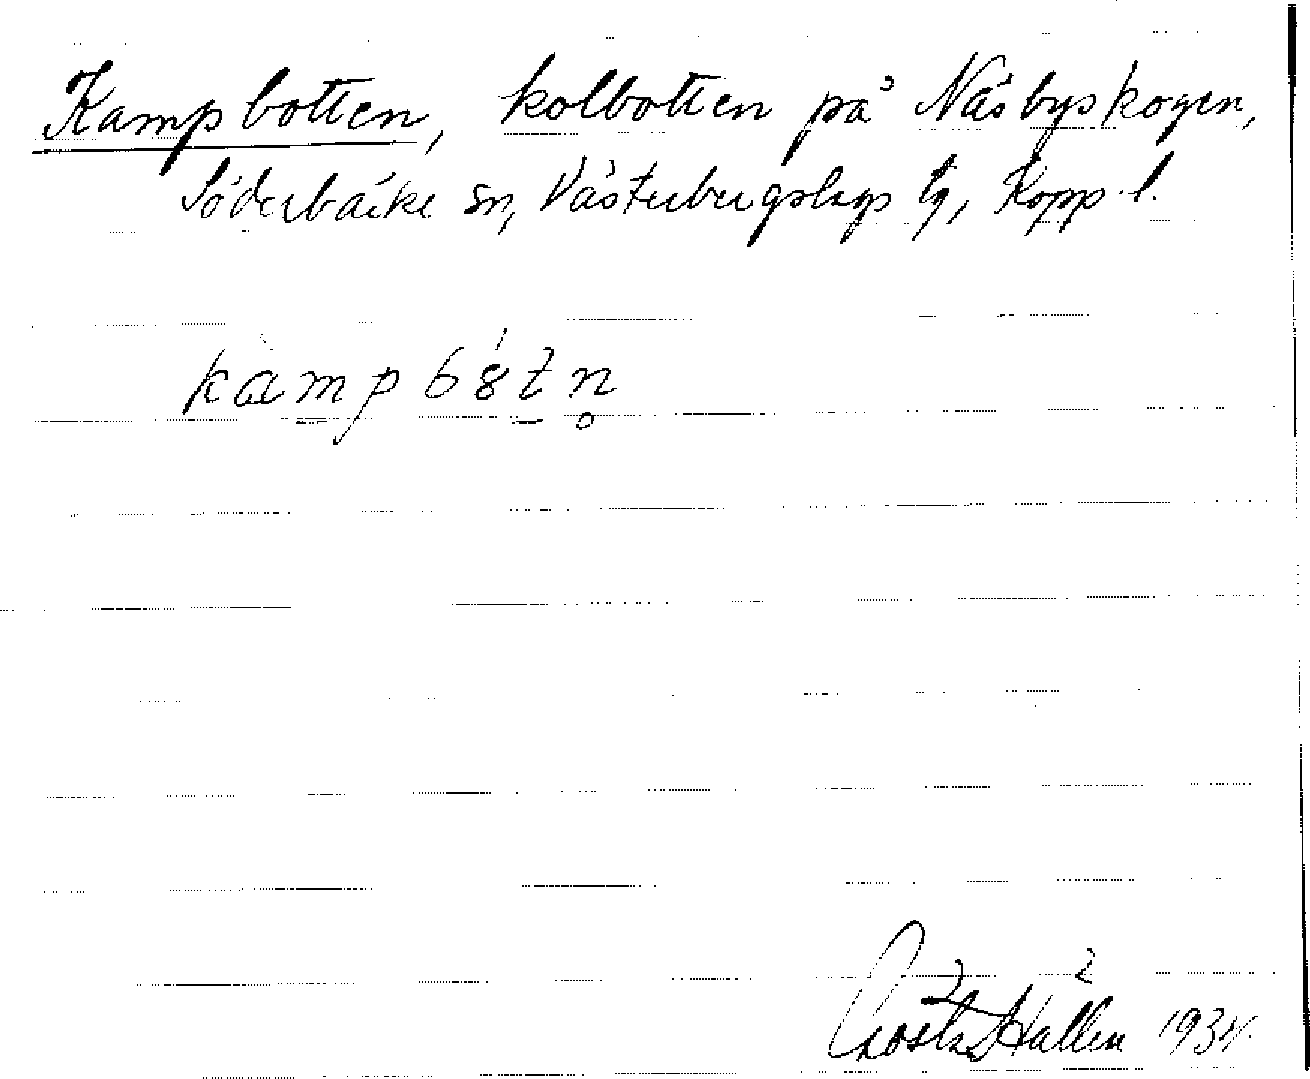 Kampbotten, kolbotten på Näsbyskogen,
Söderbärke sn, Västerbergslags tg, Kopp. l.
kàmpbó̀tn̥
Gösta Hallén 1934.